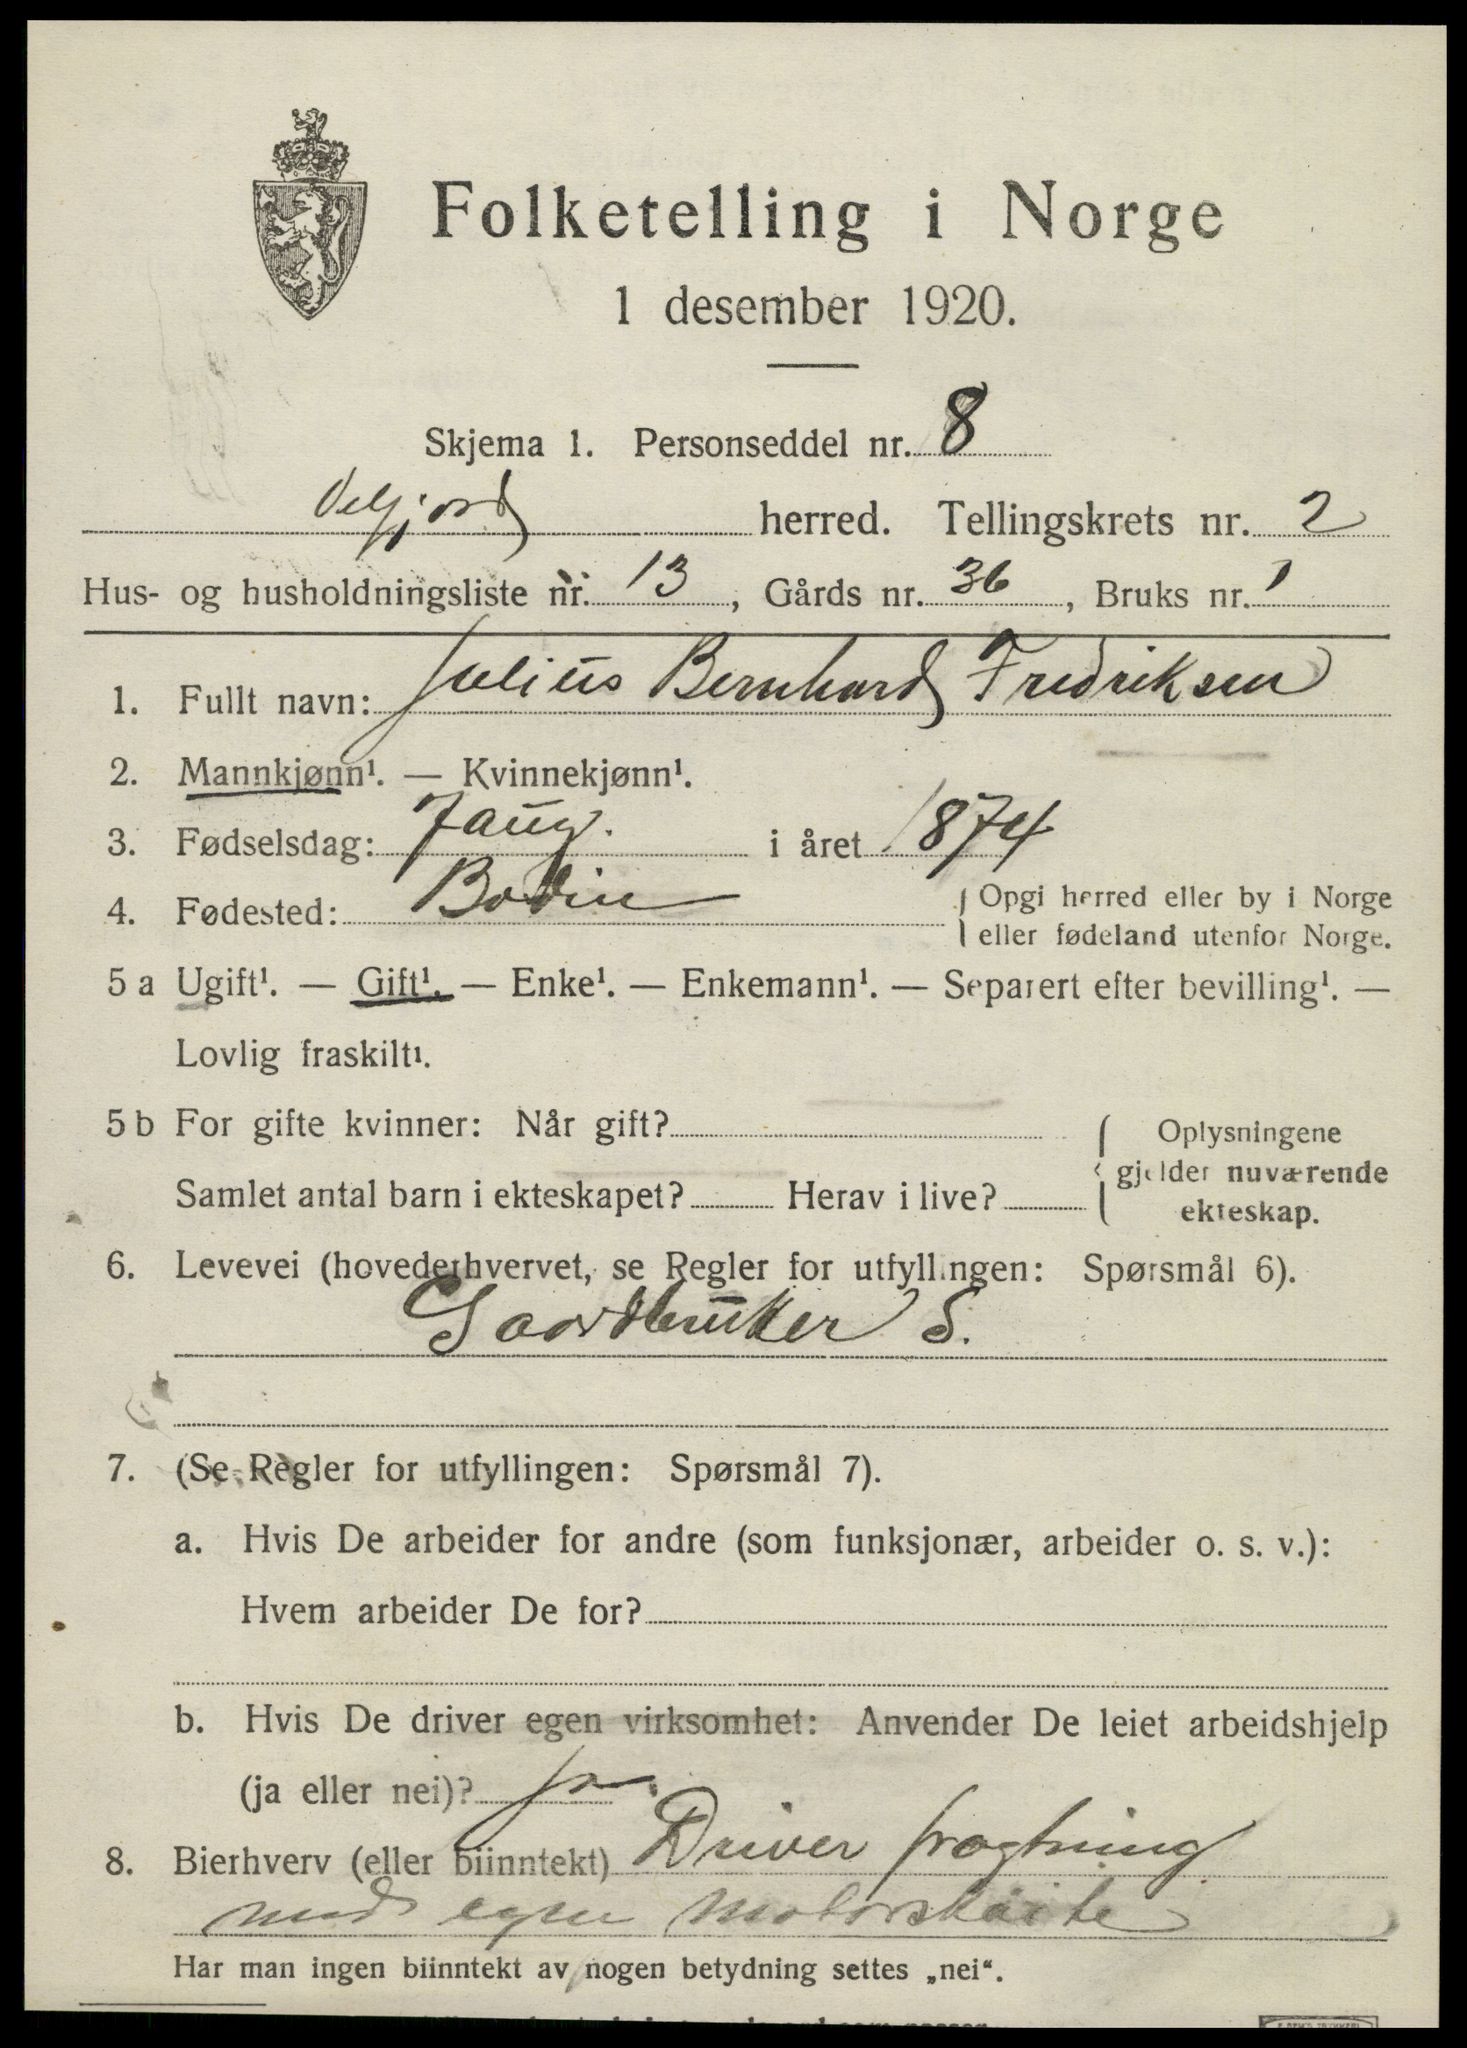 Folketelling i Norge
1 desember 1920.
Skjema 1. Personseddel nr. 8
Velfjord herred. Tellingskrets nr. 2
Hus- og husholdningsliste nr. 13, Gårds nr. 36, Bruks nr. 1
1. Fullt navn: Julius Bernhard Fredriksen
2. Mannkjønn¹. — Kvinnekjønn¹.
3. Fødselsdag: 7 aug. i året 1874
4. Fødested: Bodin { Opgi herred eller by i Norge
eller fødeland utenfor Norge.
5 a Ugift¹. — Gift¹. — Enke¹. — Enkemann¹. — Separert efter bevilling¹. —
Lovlig fraskilt¹.
5 b For gifte kvinner: Når gift? { Oplysningene
gjelder nuværende
Samlet antal barn i ekteskapet? Herav i live?
ekteskap.
6. Levevei (hovederhvervet, se Regler for utfyllingen: Spørsmål 6).
Gaardbruker S.
7. (Se Regler for utfyllingen: Spørsmål 7).
a. Hvis De arbeider for andre (som funksjonær, arbeider o. s. v.):
Hvem arbeider De for?
b. Hvis De driver egen virksomhet: Anvender De leiet arbeidshjelp
(ja eller nei)? ja.
8. Bierhverv (eller biinntekt) Driver fragtning
med egen Motorskøite
Har man ingen biinntekt av nogen betydning settes „nei“.